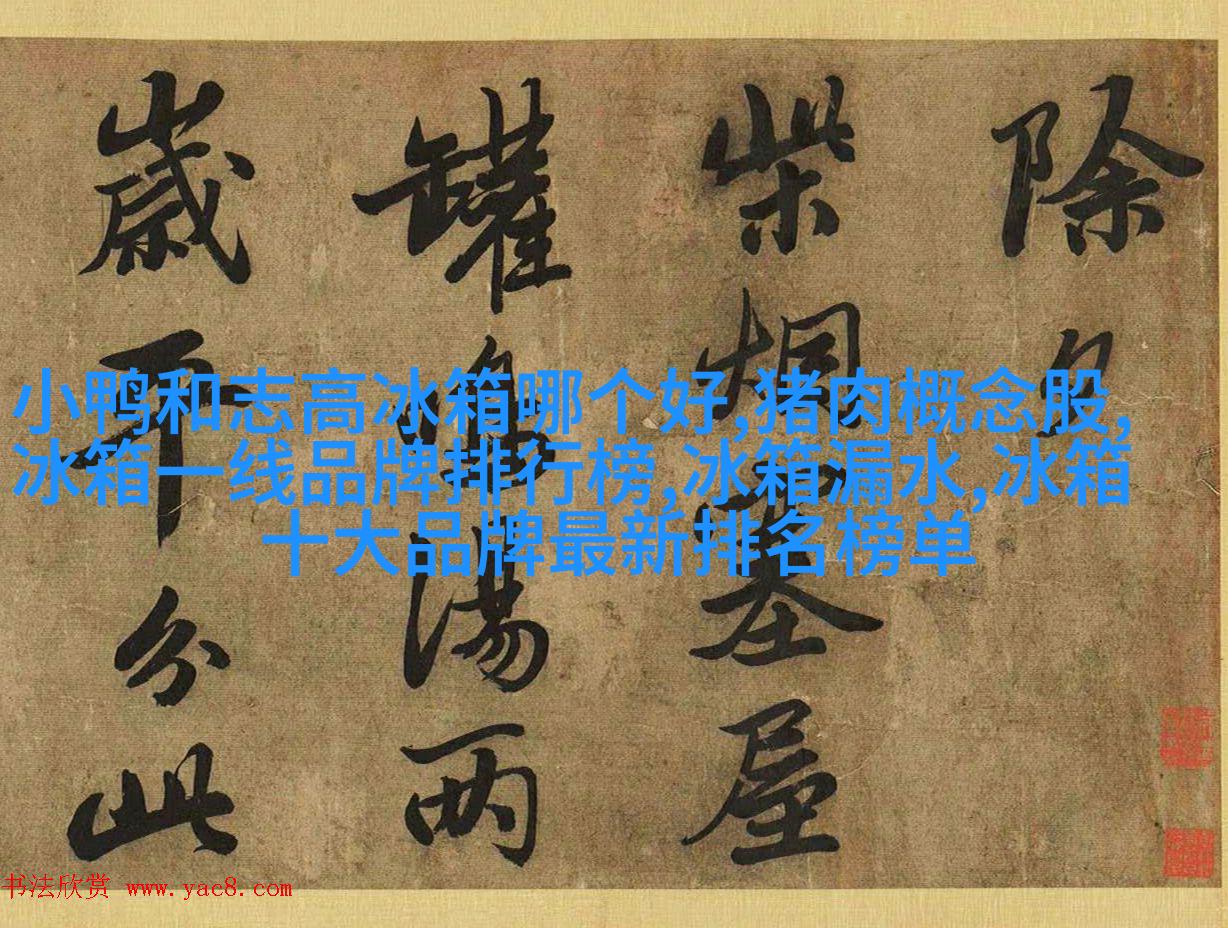 除夕
柴烟塞屋
罐鳴湯两
歲平分此
小鸭和志高冰箱哪个好,猪肉概念股,
冰箱一线品牌排行榜,冰箱漏水,冰箱
十大品牌最新排名榜单
书法欣赏 www.yac8.com